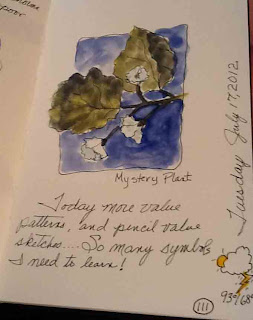 Mystery Plant
Today more value
patterns, and pencil value
sketches.... So many symbols
I need to learn!
Tuesday July 17, 2012
93°/68°
111